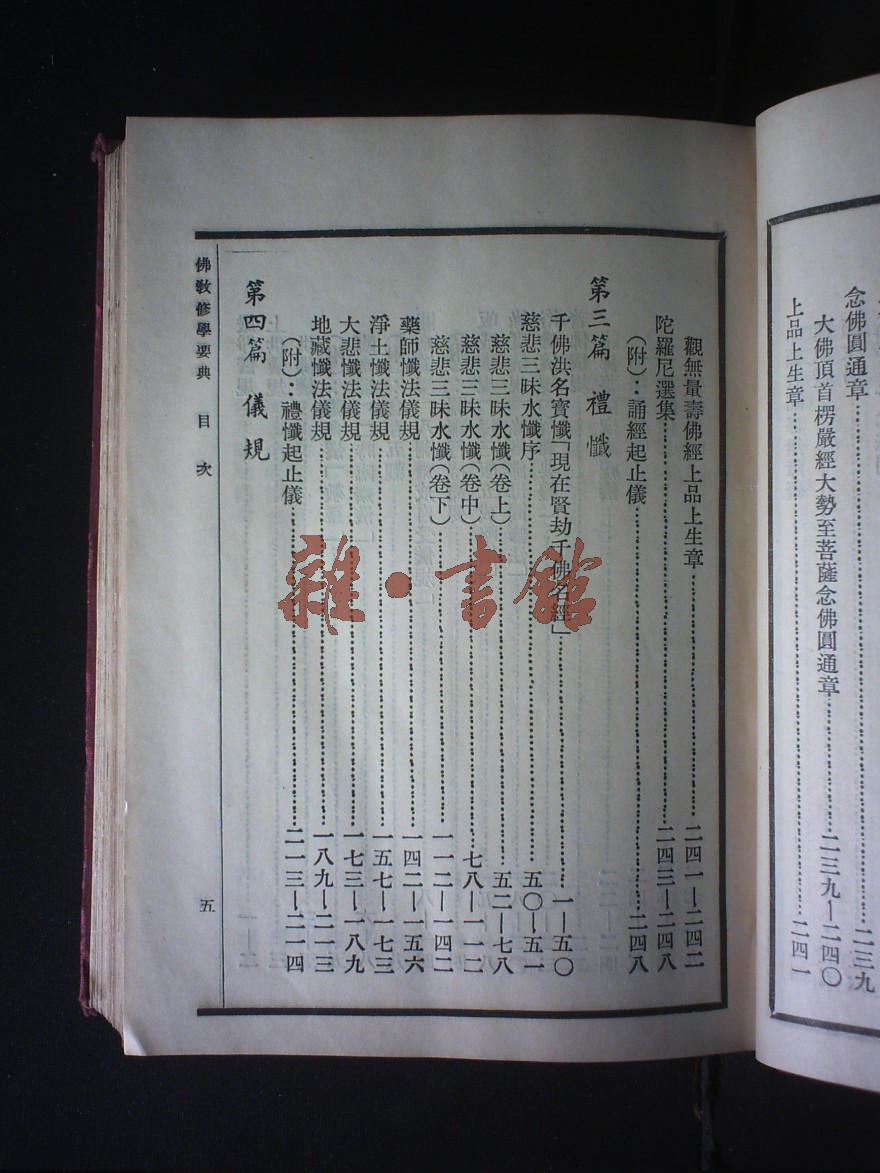 念佛圓通章……二三九
大佛頂首楞嚴經大勢至菩薩念佛圓通章……二三九—二四〇
上品上生章……二四一
觀無量壽佛經上品上生章……二四一—二四二
陀羅尼選集……二四三—二四八
(附):誦經起止儀……二四八
第三篇 禮懺
千佛洪名寶懺「現在賢劫千佛名經」……一—五〇
慈悲三昧水懺序……五〇—五一
慈悲三昧水懺(卷上)……五二—七八
慈悲三昧水懺(卷中)……七八—一一二
慈悲三昧水懺(卷下)……一一二—一四二
藥師懺法儀規……一四二—一五六
淨土懺法儀規……一五七—一七三
大悲懺法儀規……一七三—一八九
地藏懺法儀規……一八九—二一三
(附):禮懺起止儀……二一三—二一四
第四篇 儀規
佛教修學要典 目次 五
雜·書館